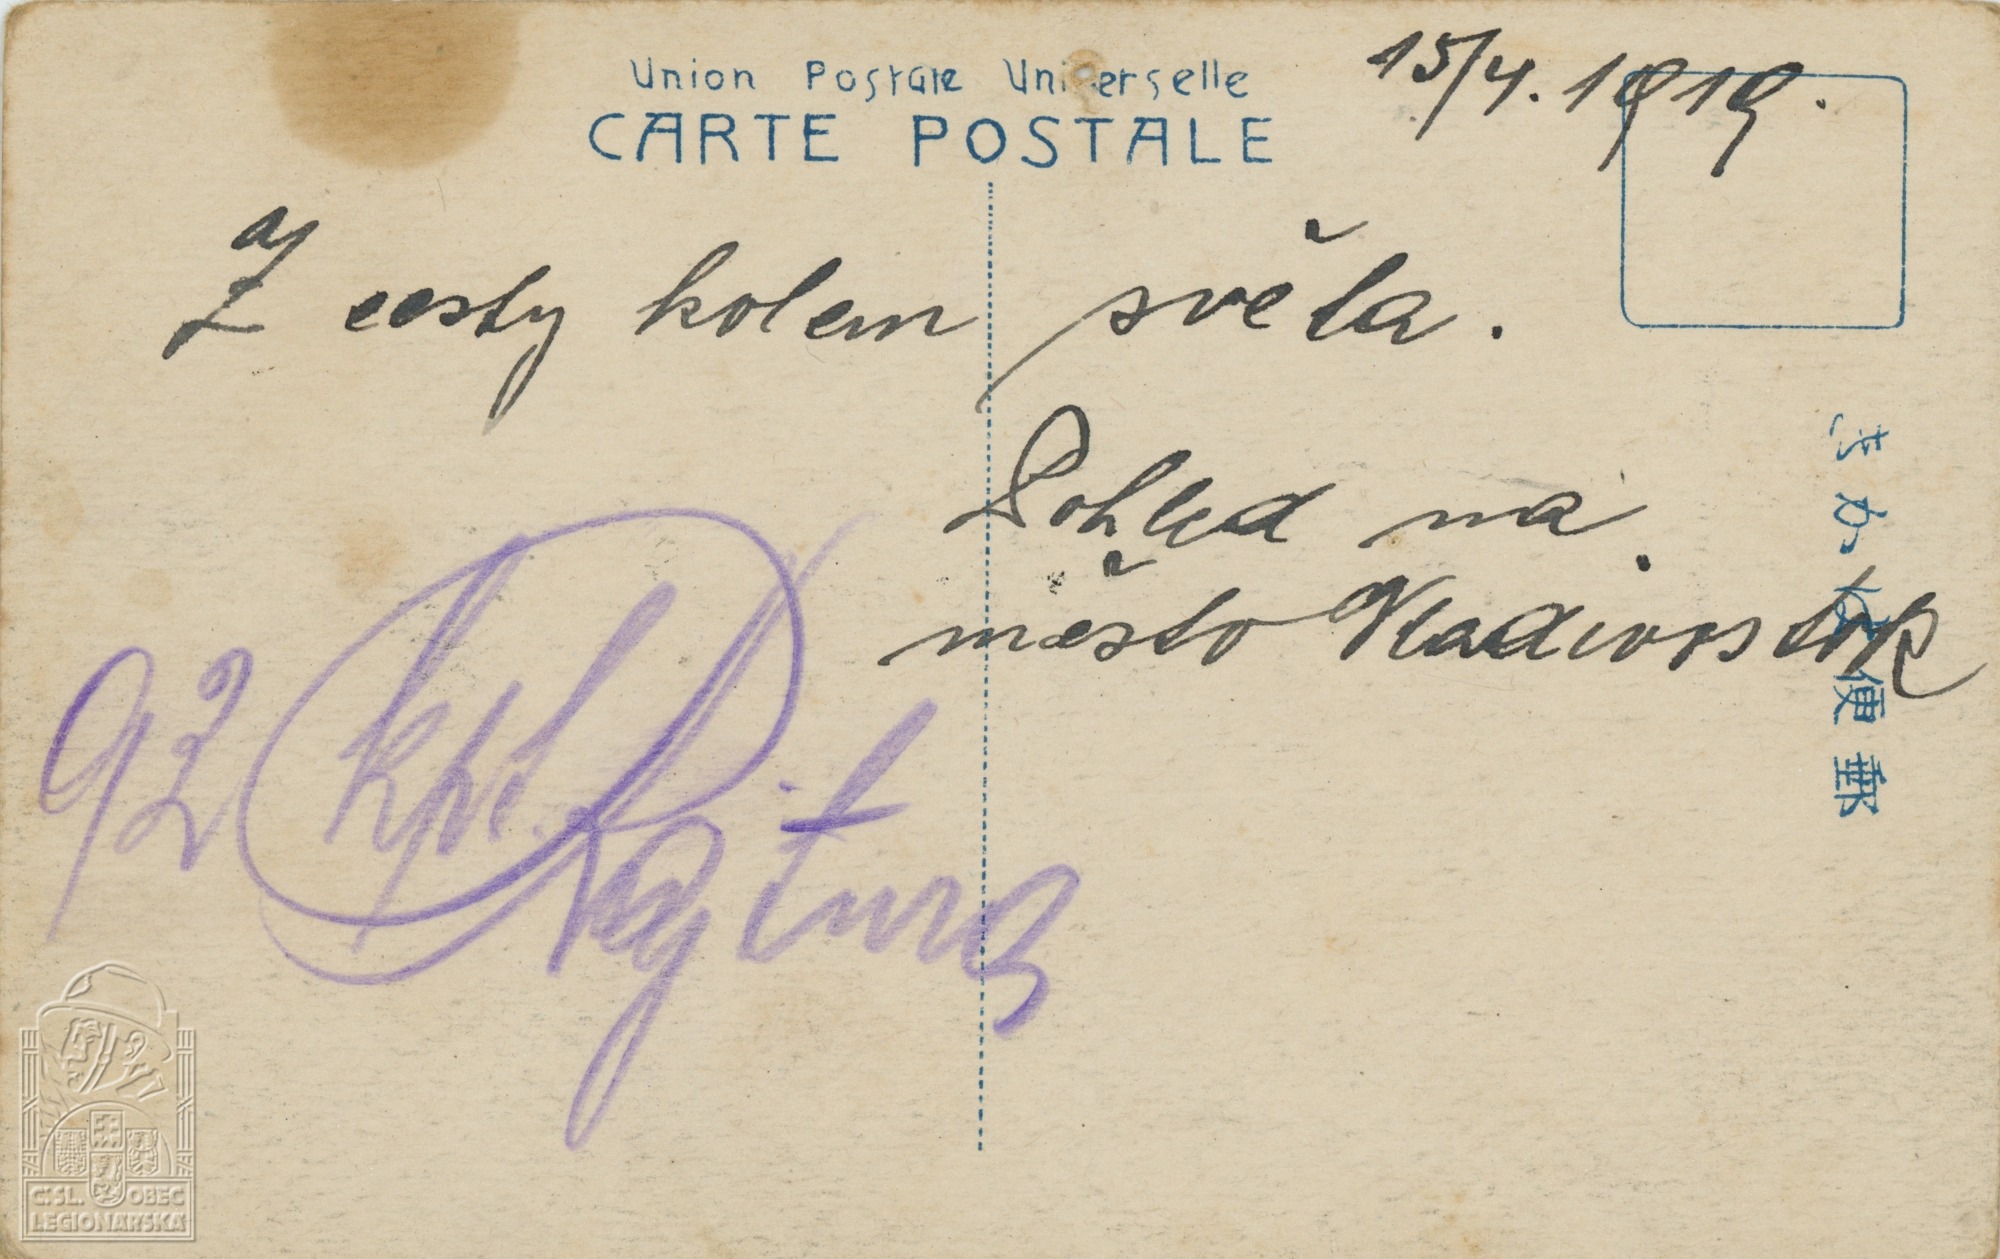 Union Postale Universelle
CARTE POSTALE
15/4. 1919.
Z cesty kolem světa.
Pohled na
město Vladivostok
92 kpt.
きかは便郵
Č:SL. OBEC
LEGIONÁŘSKÁ